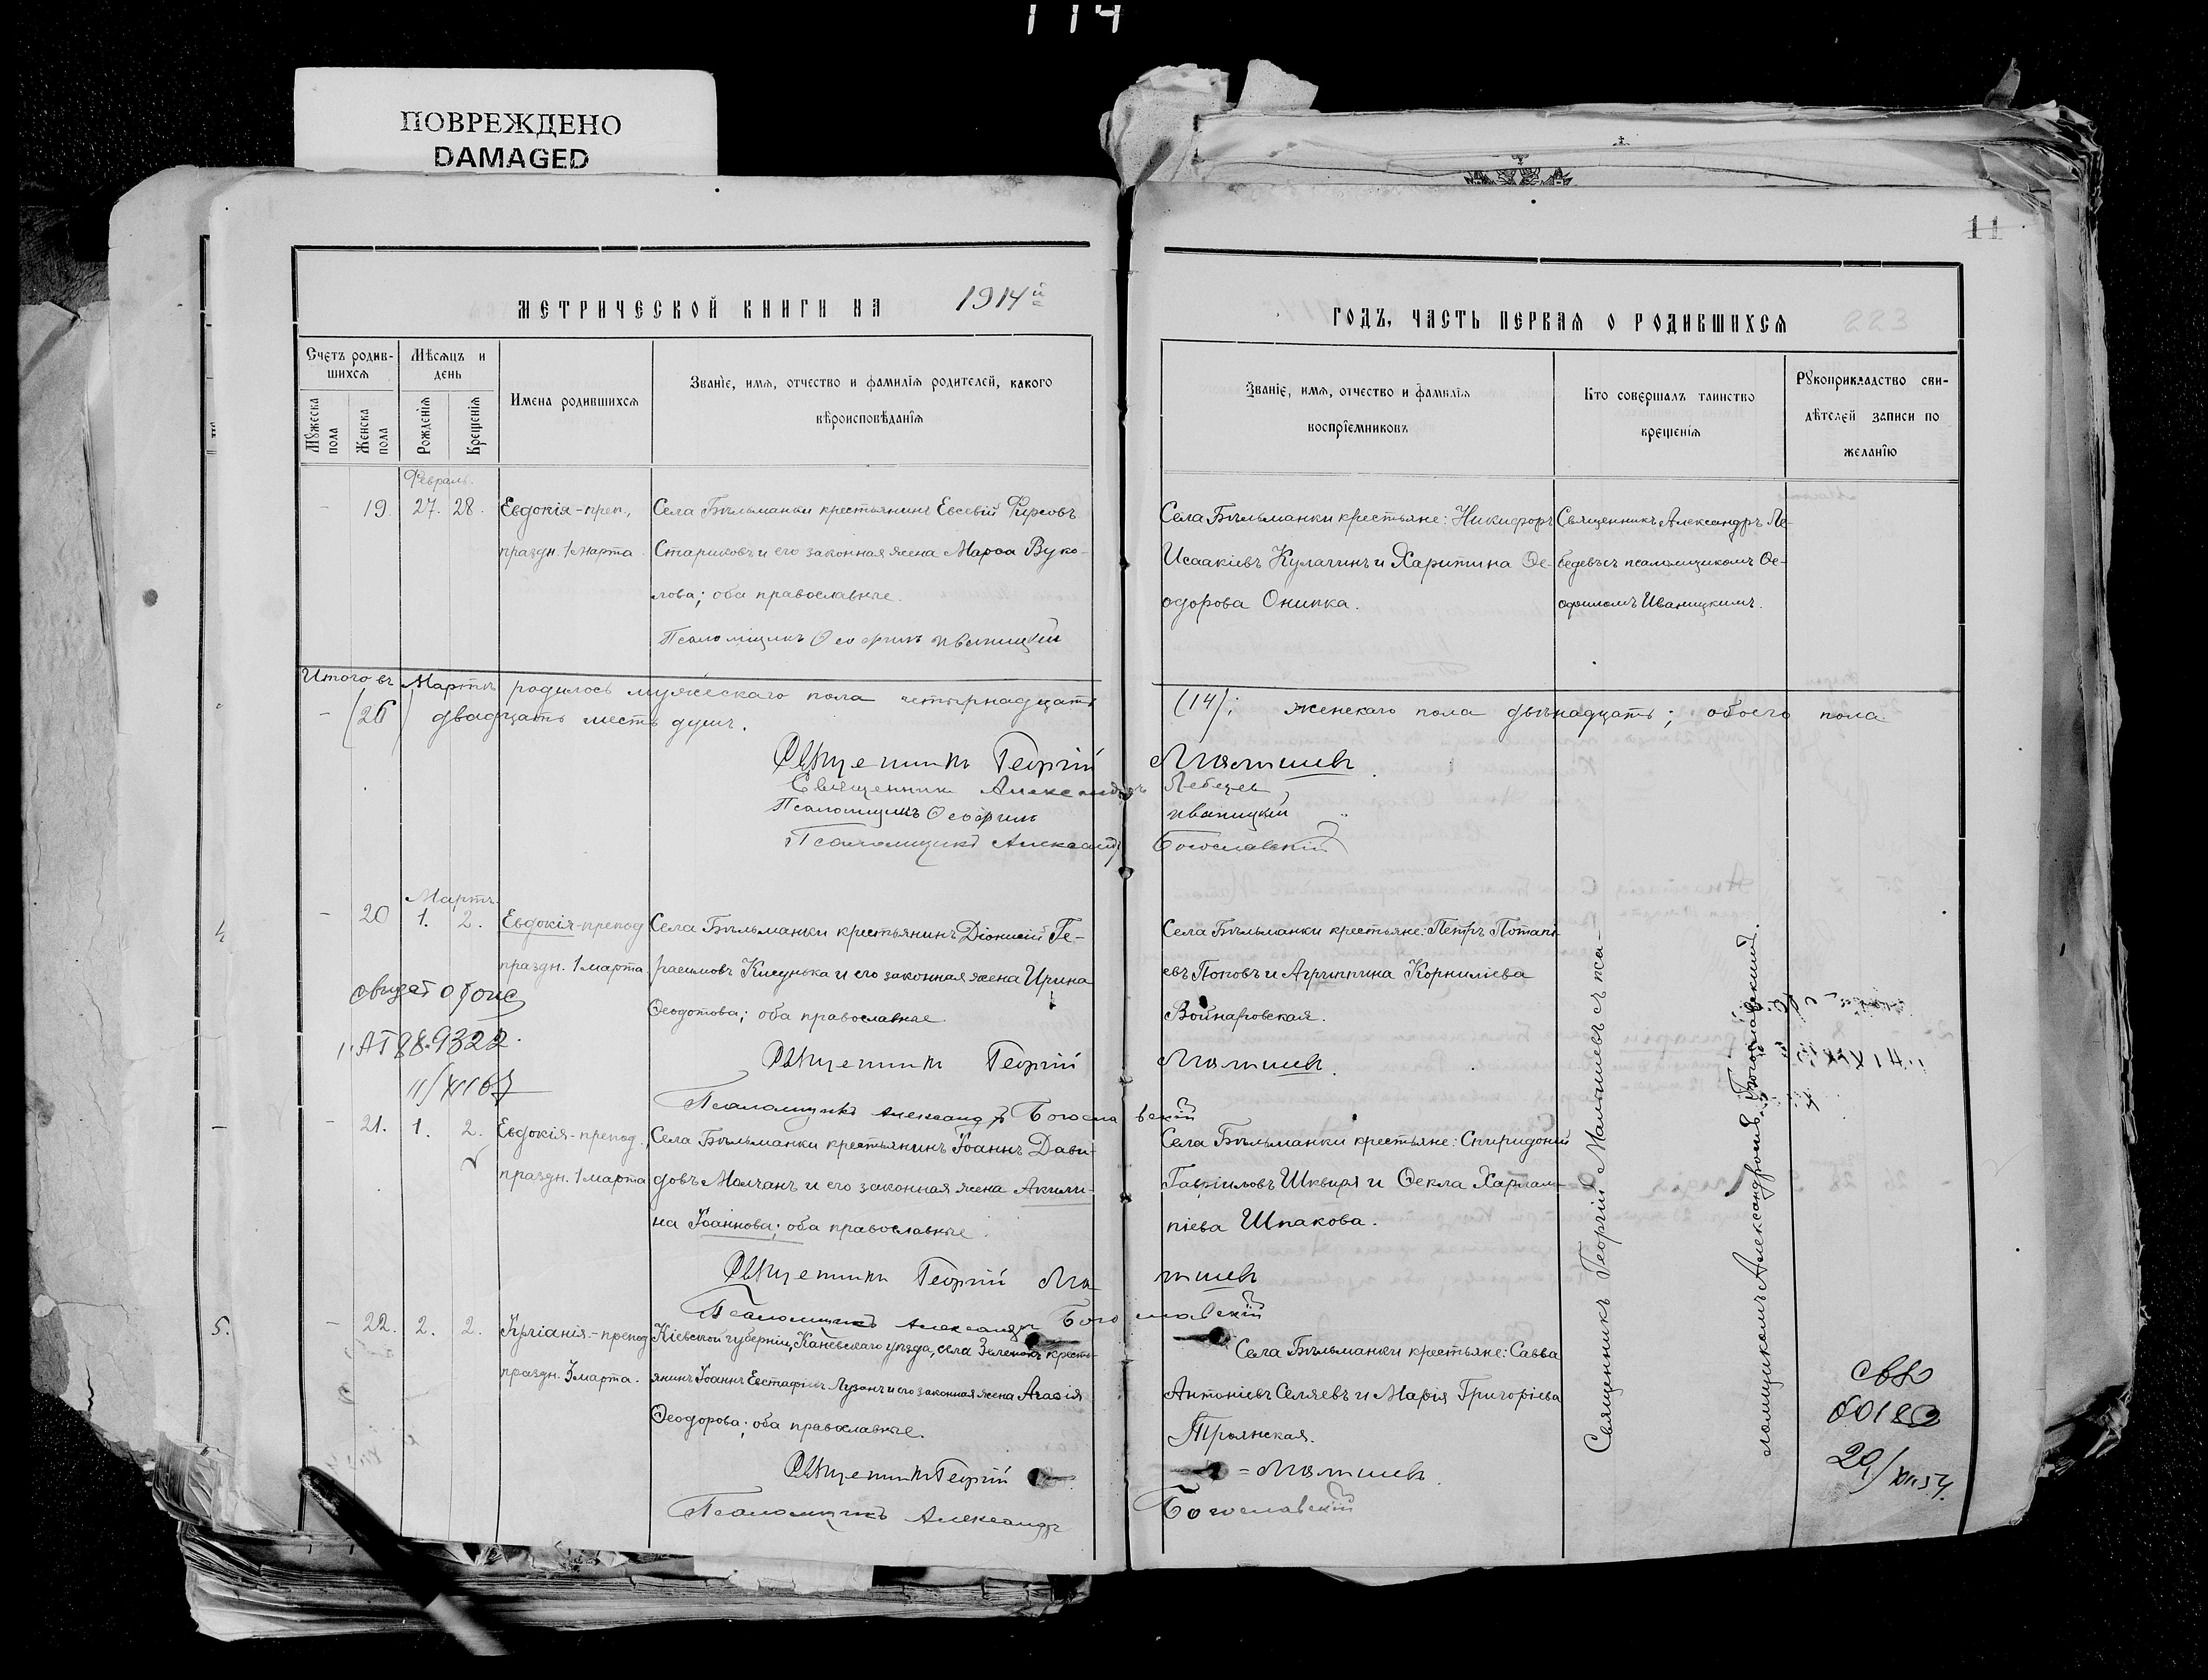 114
ПОВРЕЖДЕНО
DAMAGED
11
МЕТРИЧЕСКОЙ КНИГИ НА 1914й
ГОДЪ, ЧАСТЬ ПЕРВАЯ О РОДИВШИХСЯ
Счетъ родив-
шихся
Мѣсяцъ и
день
Мужеска
пола
Женска
пола
Рожденія
Крещенія
Имена родившихся
Званіе, имя, отчество и фамилія родителей, какого
вѣроисповѣданія
Званіе, имя, отчество и фамилія
воспріемниковъ
Кто совершалъ таинство
крещенія
Рукоприкладство сви-
дѣтелей записи по
желанію
Февраль.
- 19. 27. 28.
Евдокія - преп.,
праздн. 1 марта.
Села Бѣльманки крестьянинъ Евсевій Фирсовъ
Стариковъ и его законная жена Марѳа Вуко-
лова; оба православные.
Псаломщикъ Ѳеофилъ Иваницкій
Села Бѣльманки крестьяне: Никифоръ
Исаакіевъ Кулагинъ и Харитина Ѳе-
одорова Онипка.
Священникъ Александръ Ле-
бедевъ съ псаломщикомъ Ѳе-
офиломъ Иваницкимъ.
Итого въ Мартѣ родилось мужескаго пола четырнадцать (14); женскаго пола двѣнадцать; обоего пола
- (26) двадцать шесть душъ.
Священникъ Георгій Малышевъ.
Священникъ Александръ Лебедев
Псаломщикъ Ѳеофилъ Иваницкій
Псаломщикъ Александръ Богославскій
Мартъ.
- 20 1. 2.
Евдокія - препод
праздн. 1 марта.
Села Бѣльманки крестьянинъ Діонисій Ге-
расимовъ Кисунька и его законная жена Ирина
Ѳеодотова; оба православные.
Села Бѣльманки крестьяне: Петръ Потапі-
евъ Поповъ и Агриппина Корниліева
Войнаровская.
АТ 88.9322.
11/XII 67
Священникъ Георгій Малышевъ.
Псаломщикъ Александръ Богославскій
- 21. 1. 2.
Евдокія - препод.,
праздн. 1 марта
Села Бѣльманки крестьянинъ Іоаннъ Дави-
довъ Молчанъ и его законная жена Акили-
на Іоаннова; оба православные.
Села Бѣльманки крестьяне: Спиридоній
Гавріиловъ Шквиря и Ѳекла Харлам-
піева Шпакова.
Священникъ Георгій Малышевъ
Псаломщикъ Александръ Богославскій
4.
5.
- 22. 2. 2.
препод
праздн. 3 марта.
Кіевской губерніи, Каневскаго уѣзда, села Зеленокъ кресть-
янинъ Іоаннъ Евстафіевъ Лузанъ и его законная жена Агаѳія
Ѳеодорова; оба православные.
Села Бѣльманки крестьяне: Савва
Антоніевъ Селяевъ и Марія Григоріева
Троянская.
Священникъ Георгій = Малышевъ.
Псаломщикъ Александръ Богославскій
Священникъ Георгій Малышевъ съ пса-
ломщикомъ Александромъ Богославскимъ.